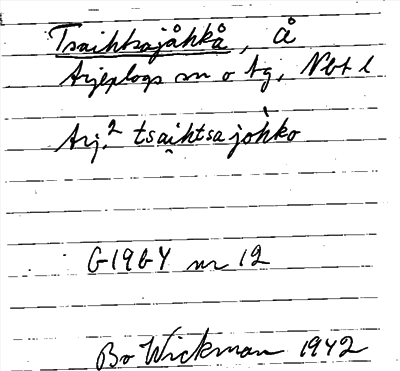 Tsaihtsajåhkå, å
Arjeplogs sn o tg, Nbt l
Arj.² tsai̯htsa jo̍hko
G1964 nr 12
Bo Wickman 1942